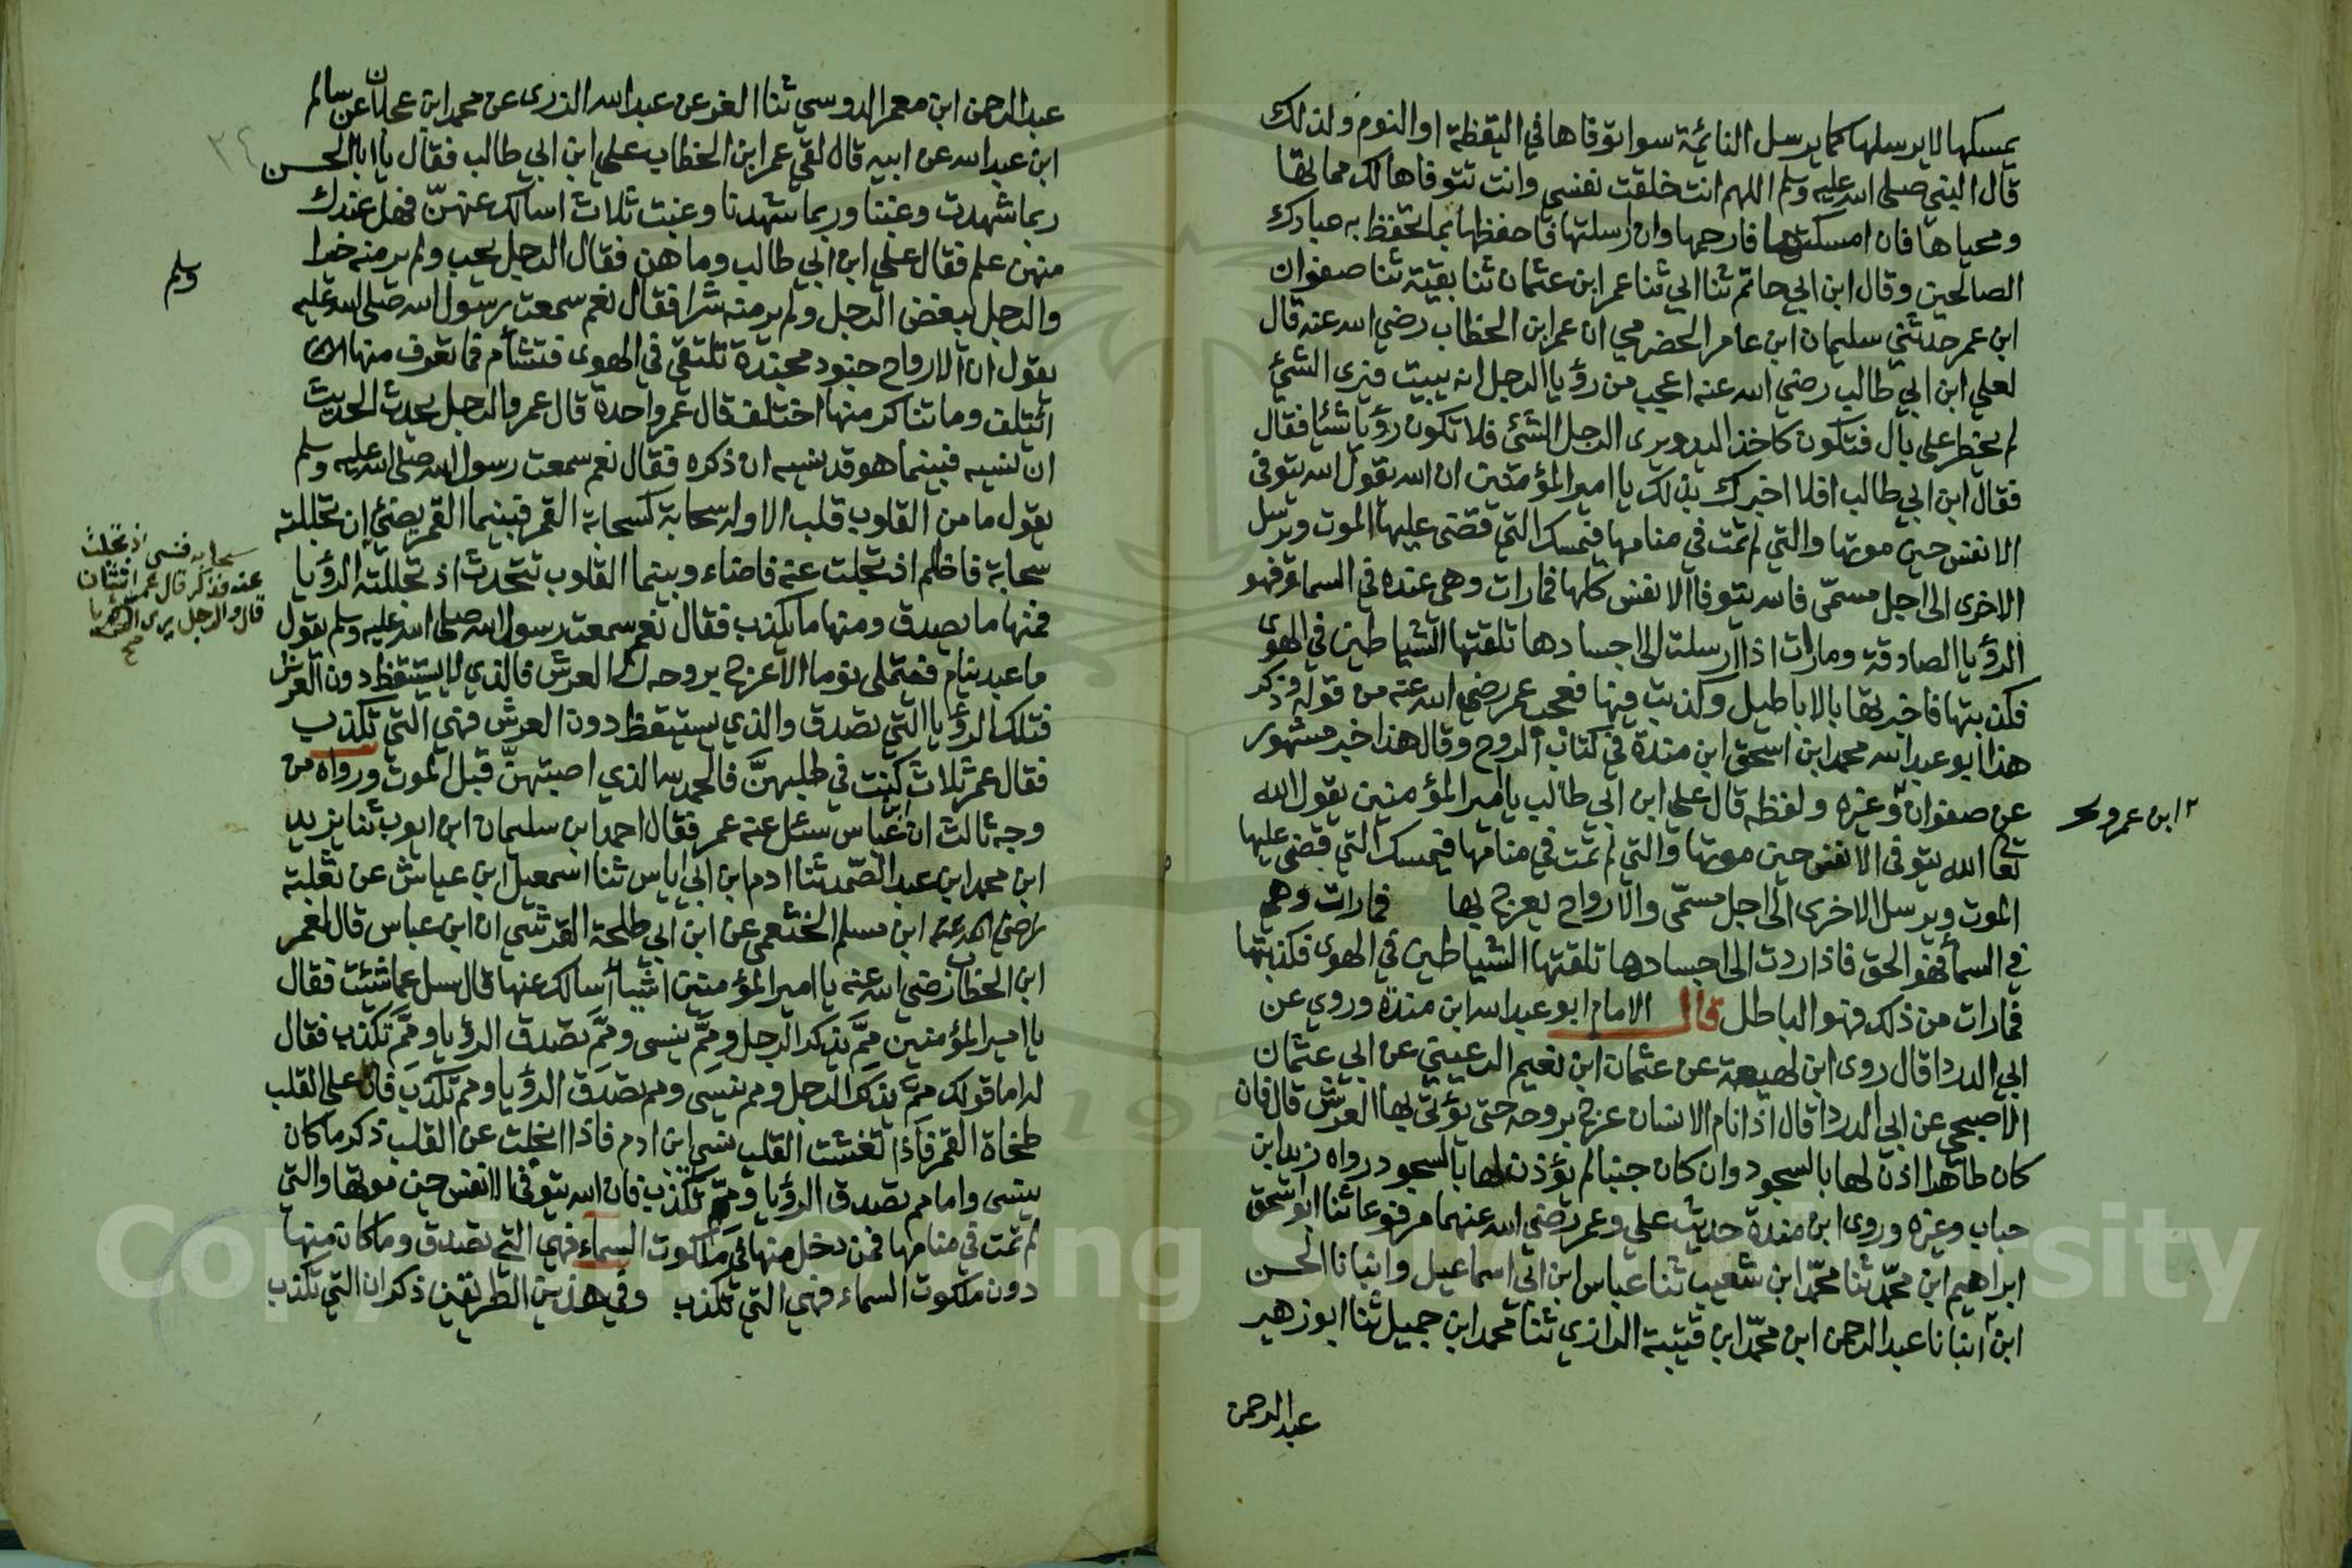 يمسكها لا يرسلها كما يرسل النائمة سوا توفاها في اليقظة او النوم ولذلك
قال النبي صلى الله عليه وسلم اللهم انت خلقت نفسي وانت تتوفاها لك مماتها
ومحياها فان امسكتها فارحمها وان ارسلتها فاحفظها بما تحفظ به عبادك
الصالحين وقال ابن ابي حاتم ثنا ابي ثنا عمر ابن عثمان ثنا بقية ثنا صفوان
ابن عمر حدثني سليمان ابن عامر الحضرمي ان عمر ابن الخطاب رضي الله عنه قال
لعلي ابن ابي طالب رضي الله عنه اعجب من رؤيا الرجل انه يبيت فيرى الشئ
لم يخطر على بال فتكون كاخذ اليد ويرى الرجل الشئ فلا تكون رؤيا شئا فقال
فقال ابن ابي طالب افلا اخبرك بذلك يا امير المؤمنين ان الله يقول الله يتوفى
الانفس حين موتها والتي لم تمت في منامها فيمسك التي قضى عليها الموت ويرسل
الاخرى الى اجل مسمى فالله يتوفا الانفس كلها فما رات وهي عنده في السما فهو
الرؤيا الصادقة وما رات اذا ارسلت الى اجسادها تلقتها الشياطين في الهوى
فكذبتها فاخبرتها بالاباطيل وكذبت فيها فعجب عمر رضي الله عنه من قوله وذكر
هذا ابو عبد الله محمد ابن اسحق ابن مندة في كتاب الروح وقال هذا خبر مشهور
عن صفوان وغيره ولفظه قال علي ابن ابي طالب يا امير المؤمنين يقول الله
ابن عمرو صح
تعا الله يتوفى الانفس حين موتها والتي لم تمت في منامها فيمسك التي قضى عليها
الموت ويرسل الاخرى الى اجل مسمى والارواح يعرج بها فما رات وهي
في السما فهو الحق فاذا ردت الى اجسادها تلقتها الشياطين في الهوى فكذبتها
فما رات من ذلك فهو الباطل قال الامام ابو عبد الله ابن مندة وروي عن
ابي الدردا قال روى ابن لهيعة عن عثمان ابن نعيم الرعيني عن ابي عثمان
الاصبحي عن ابي الدردا قال اذا نام الانسان عرج بروحه حتى يؤتى بها العرش قال فان
كان طاهرا اذن لها بالسجود وان كان جنبا لم يؤذن لها بالسجود رواه زيد ابن
حباب وغيره وروى ابن مندة حديث علي وعمر رضي الله عنهما مرفوعا ثنا ابو اسحق
ابراهيم ابن محمد ثنا محمد ابن شعيب ثنا عباس ابن ابي اسماعيل وانبانا الحسن
ابن انبانا عبد الرحمن ابن محمد ابن قتيبة الرازي ثنا محمد ابن حميل ثنا ابو زهير
عبد الرحمن
عبد الرحمن ابن معمر الدوسي ثنا الغر عن عبد الله الزرى عن محمد ابن عجلان عن سالم
ابن عبد الله عن ابيه قال لقي عمر ابن الخطاب علي ابن ابي طالب فقال يا ابا الحسن
٣٤
ربما شهدت وغبنا وربما شهدنا وغبت ثلاث اسالك عنهنّ فهل عندك
منهن علم فقال علي ابن ابي طالب وما هن فقال الرجل يحب ولم ير منه خيرا
والرجل يبغض الرجل ولم ير منه شرا فقال نعم سمعت رسول الله صلى الله عليه
وسلم
يقول ان الارواح جنود مجندة تلتقي في الهوى فتشأم فما تعرف منها
ائتلف وما تناكر منها اختلف قال عمر واحدة قال عمر والرجل يحدث الحديث
ان نسيه فبينما هو قد نسيه ان ذكره فقال نعم سمعت رسول الله صلى الله عليه وسلم
يقول ما من القلوب قلب الا وله سحابة كسحابة القمر فبينما القمر يضئ ان تجللته
سحابة فاظلم اذ تجلت عنه فاضاء وبينما القلوب تتحدث اذ تجللته الرؤيا
سحابه فنسى اذ تجلت
عنه فذكر قال عمر اثنتان
قال والرجل يرى الرؤيا
صح
فمنها ما يصدق ومنها ما يكذب فقال نعم سمعت رسول الله صلى الله عليه وسلم يقول
ما عبد ينام فيمتلي نوما الا عرج بروحه الى العرش فالذي لا يستيقظ دون العرش
فتلك الرؤيا التي تصدق والذي يستيقظ دون العرش فهي التي تكذب
فقال عمر ثلاث كنت في طلبهنّ فالحمد لله الذي اصبتهنّ قبل الموت ورواه من
وجه ثالث ان عباس سئل عنه عمر فقال احمد ابن سليمان ابن ايوب ثنا يزيد
ابن محمد ابن عبد الصمد ثنا ادم ابن ابي اياس ثنا اسمعيل ابن عياش عن ثعلبة
رضي الله عنه ابن مسلم الخثعمي عن ابن ابي طلحة القرشي ان ابن عباس قال لعمر
ابن الخطاب رضي الله عنه يا امير المؤمنين اشيا أسالك عنها قال سل عما شئت فقال
يا امير المؤمنين ممَّ يذكر الرجل وممَّ ينسى وممَّ تصدق الرؤيا وممَّ تكذب فقال
له اما قولك ممَّ يذكر الرجل ومم ينسى ومم تصدق الرؤيا ومم تكذب فان على القلب
طخاة القمر فاذا تغشت القلب نسي ابن ادم فاذا انجلت عن القلب ذكر ما كان
ينسى واما مم تصدق الرؤيا ومم تكذب فان الله يتوفى الانفس حين موتها والتي
لم تمت في منامها فمن دخل منها في ملكوت السماء فهي التي تصدق وما كان منها
دون ملكوت السماء فهي التي تكذب وفي هذين الطريقين ذكر ان التي تكذب